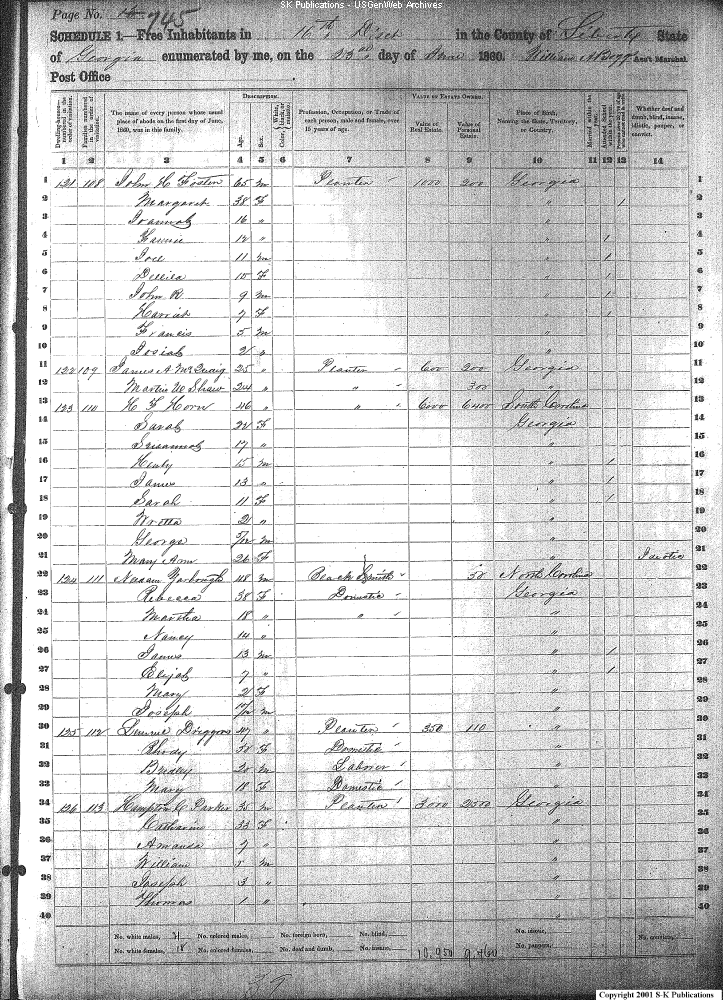 SK Publications - USGenWeb Archives
Page No. 745
SCHEDULE 1.—Free Inhabitants in 16th Dist in the County of Liberty State
of Georgia enumerated by me, on the 23rd day of June 1860. Ass't Marshal
Post Office
DESCRIPTION. VALUE OF ESTATE OWNED.
Dwelling-houses—numbered in the order of visitation. Families numbered in the order of visitation. The name of every person whose usual place of abode on the first day of June, 1860, was in this family. Age. Sex. Color, White, black, or mulatto. Profession, Occupation, or Trade of each person, male and female, over 15 years of age. Value of Real Estate. Value of Personal Estate. Place of Birth, Naming the State, Territory, or Country. Married within the year. Attended School within the year. Whether deaf and dumb, blind, insane, idiotic, pauper, or convict.
1 2 3 4 5 6 7 8 9 10 11 12 13 14
1 121 108 John H Foster 65 m Planter 1000 200 Georgia 1
2 Margaret 38 F " 1 2
3 Joannah 16 " " 3
4 12 " " 1 4
5 Joel 11 m " 1 5
6 10 F " 1 6
7 John R 9 m " 1 7
8 Harriet 7 F " 1 8
9 Francis 5 m " 9
10 Josiah 2 " " 10
11 122 109 James A McQuaig 25 " Planter 600 200 Georgia 11
12 Martin W Shaw 24 " " 300 " 12
13 123 110 H F Horn 46 " " 6000 6400 South Carolina 13
14 Sarah 22 F Georgia 14
15 Susannah 17 " " 15
16 Henly 15 m " 1 16
17 James 13 " " 1 17
18 Sarah 11 F " 1 18
19 2 " " 19
20 George m " 20
21 Mary Ann 26 F " Idiotic 21
22 124 111 Yarbough 48 m Black Smith 50 North Carolina 22
23 Rebecca 38 F Domestic Georgia 23
24 Martha 18 " " " 24
25 Nancy 14 " " 25
26 James 13 m " 1 26
27 Elijah 7 " " 1 27
28 Mary 2 F " 28
29 Joseph m " 29
30 125 112 " Planter 350 110 " 30
31 Rhody 38 F Domestic " 31
32 20 m Laborer " 32
33 Mary 18 F Domestic " 33
34 126 113 Hampton C Parker 35 m Planter 3000 2500 Georgia 34
35 Catharine 33 F " 35
36 Amanda 7 " " 36
37 William 5 m " 37
38 Joseph 3 " " 38
39 Thomas 1 " " 39
40 40
No. white males, 21 No. colored males, No. foreign born, No. blind, No. insane, No. convicts,
No. white females, 18 No. colored females, No. deaf and dumb, No. idiotic, 10,950 9,460 No. paupers,
39
Copyright 2001 S-K Publications